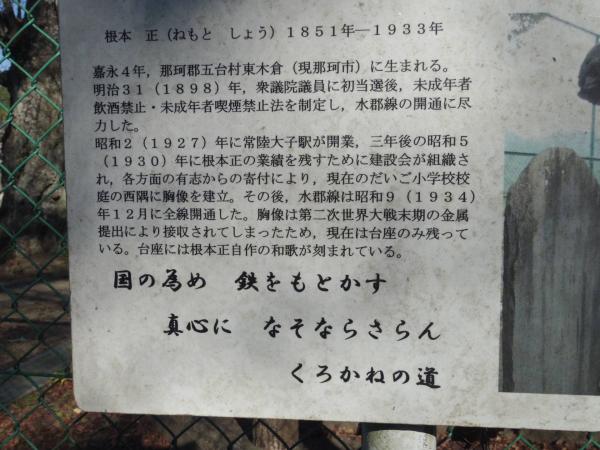 根本 正（ねもと しょう）１８５１年―１９３３年
嘉永４年，那珂郡五台村東木倉（現那珂市）に生まれる。
明治３１（１８９８）年，衆議院議員に初当選後，未成年者
飲酒禁止・未成年者喫煙禁止法を制定し，水郡線の開通に尽
力した。
昭和２（１９２７）年に常陸大子駅が開業，三年後の昭和５
（１９３０）年に根本正の業績を残すために建設会が組織さ
れ，各方面の有志からの寄付により，現在のだいご小学校校
庭の西隅に胸像を建立。その後，水郡線は昭和９（１９３４）
年１２月に全線開通した。胸像は第二次世界大戦末期の金属
提出により接収されてしまったため，現在は台座のみ残って
いる。台座には根本正自作の和歌が刻まれている。
国の為め 鉄をもとかす
真心に なそならさらん
くろかねの道